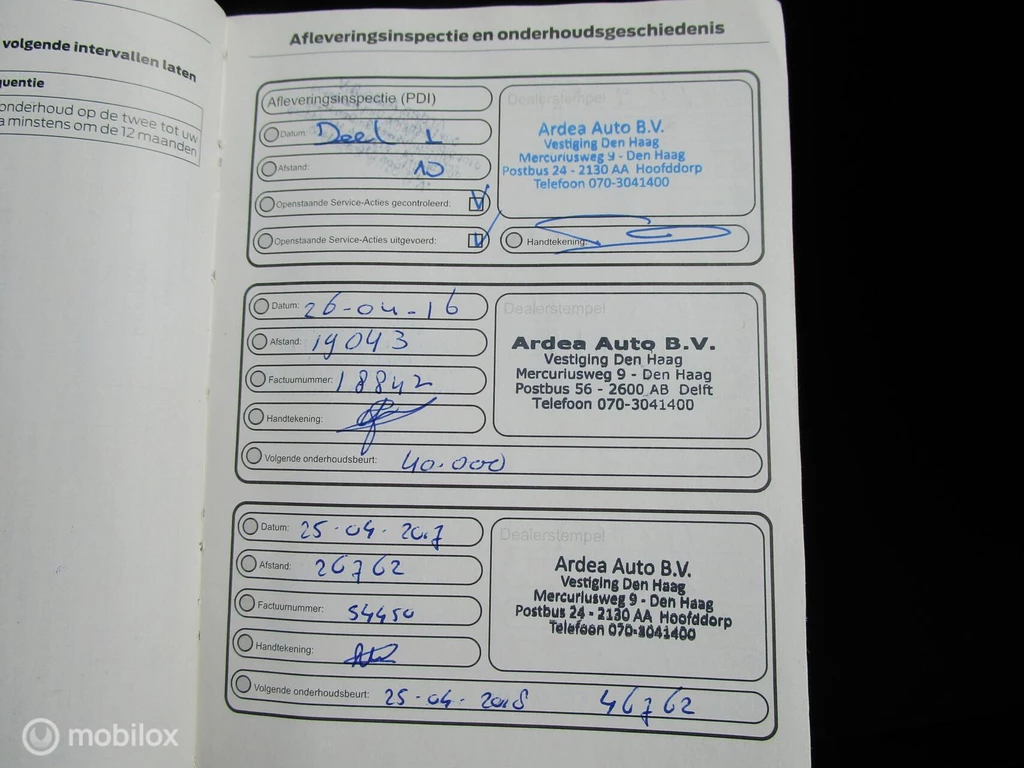 volgende intervallen laten
uentie
onderhoud op de twee tot uw
a minstens om de 12 maanden
Afleveringsinspectie en onderhoudsgeschiedenis
Afleveringsinspectie (PDI)
Datum: Deel 1
Afstand: 10
Openstaande Service-Acties gecontroleerd: V
Openstaande Service-Acties uitgevoerd: V
Dealerstempel
Ardea Auto B.V.
Vestiging Den Haag
Mercuriusweg 9 - Den Haag
Postbus 24 - 2130 AA Hoofddorp
Telefoon 070-3041400
Handtekening:
Datum: 26-04-16
Afstand: 19043
Factuurnummer: 18842
Handtekening:
Volgende onderhoudsbeurt: 40.000
Dealerstempel
Ardea Auto B.V.
Vestiging Den Haag
Mercuriusweg 9 - Den Haag
Postbus 56 - 2600 AB Delft
Telefoon 070-3041400
Datum: 25-04-2017
Afstand: 26762
Factuurnummer: 54450
Handtekening:
Volgende onderhoudsbeurt: 25-04-2018 46762
Dealerstempel
Ardea Auto B.V.
Vestiging Den Haag
Mercuriusweg 9 - Den Haag
Postbus 24 - 2130 AA Hoofddorp
Telefoon 070-3041400
mobilox